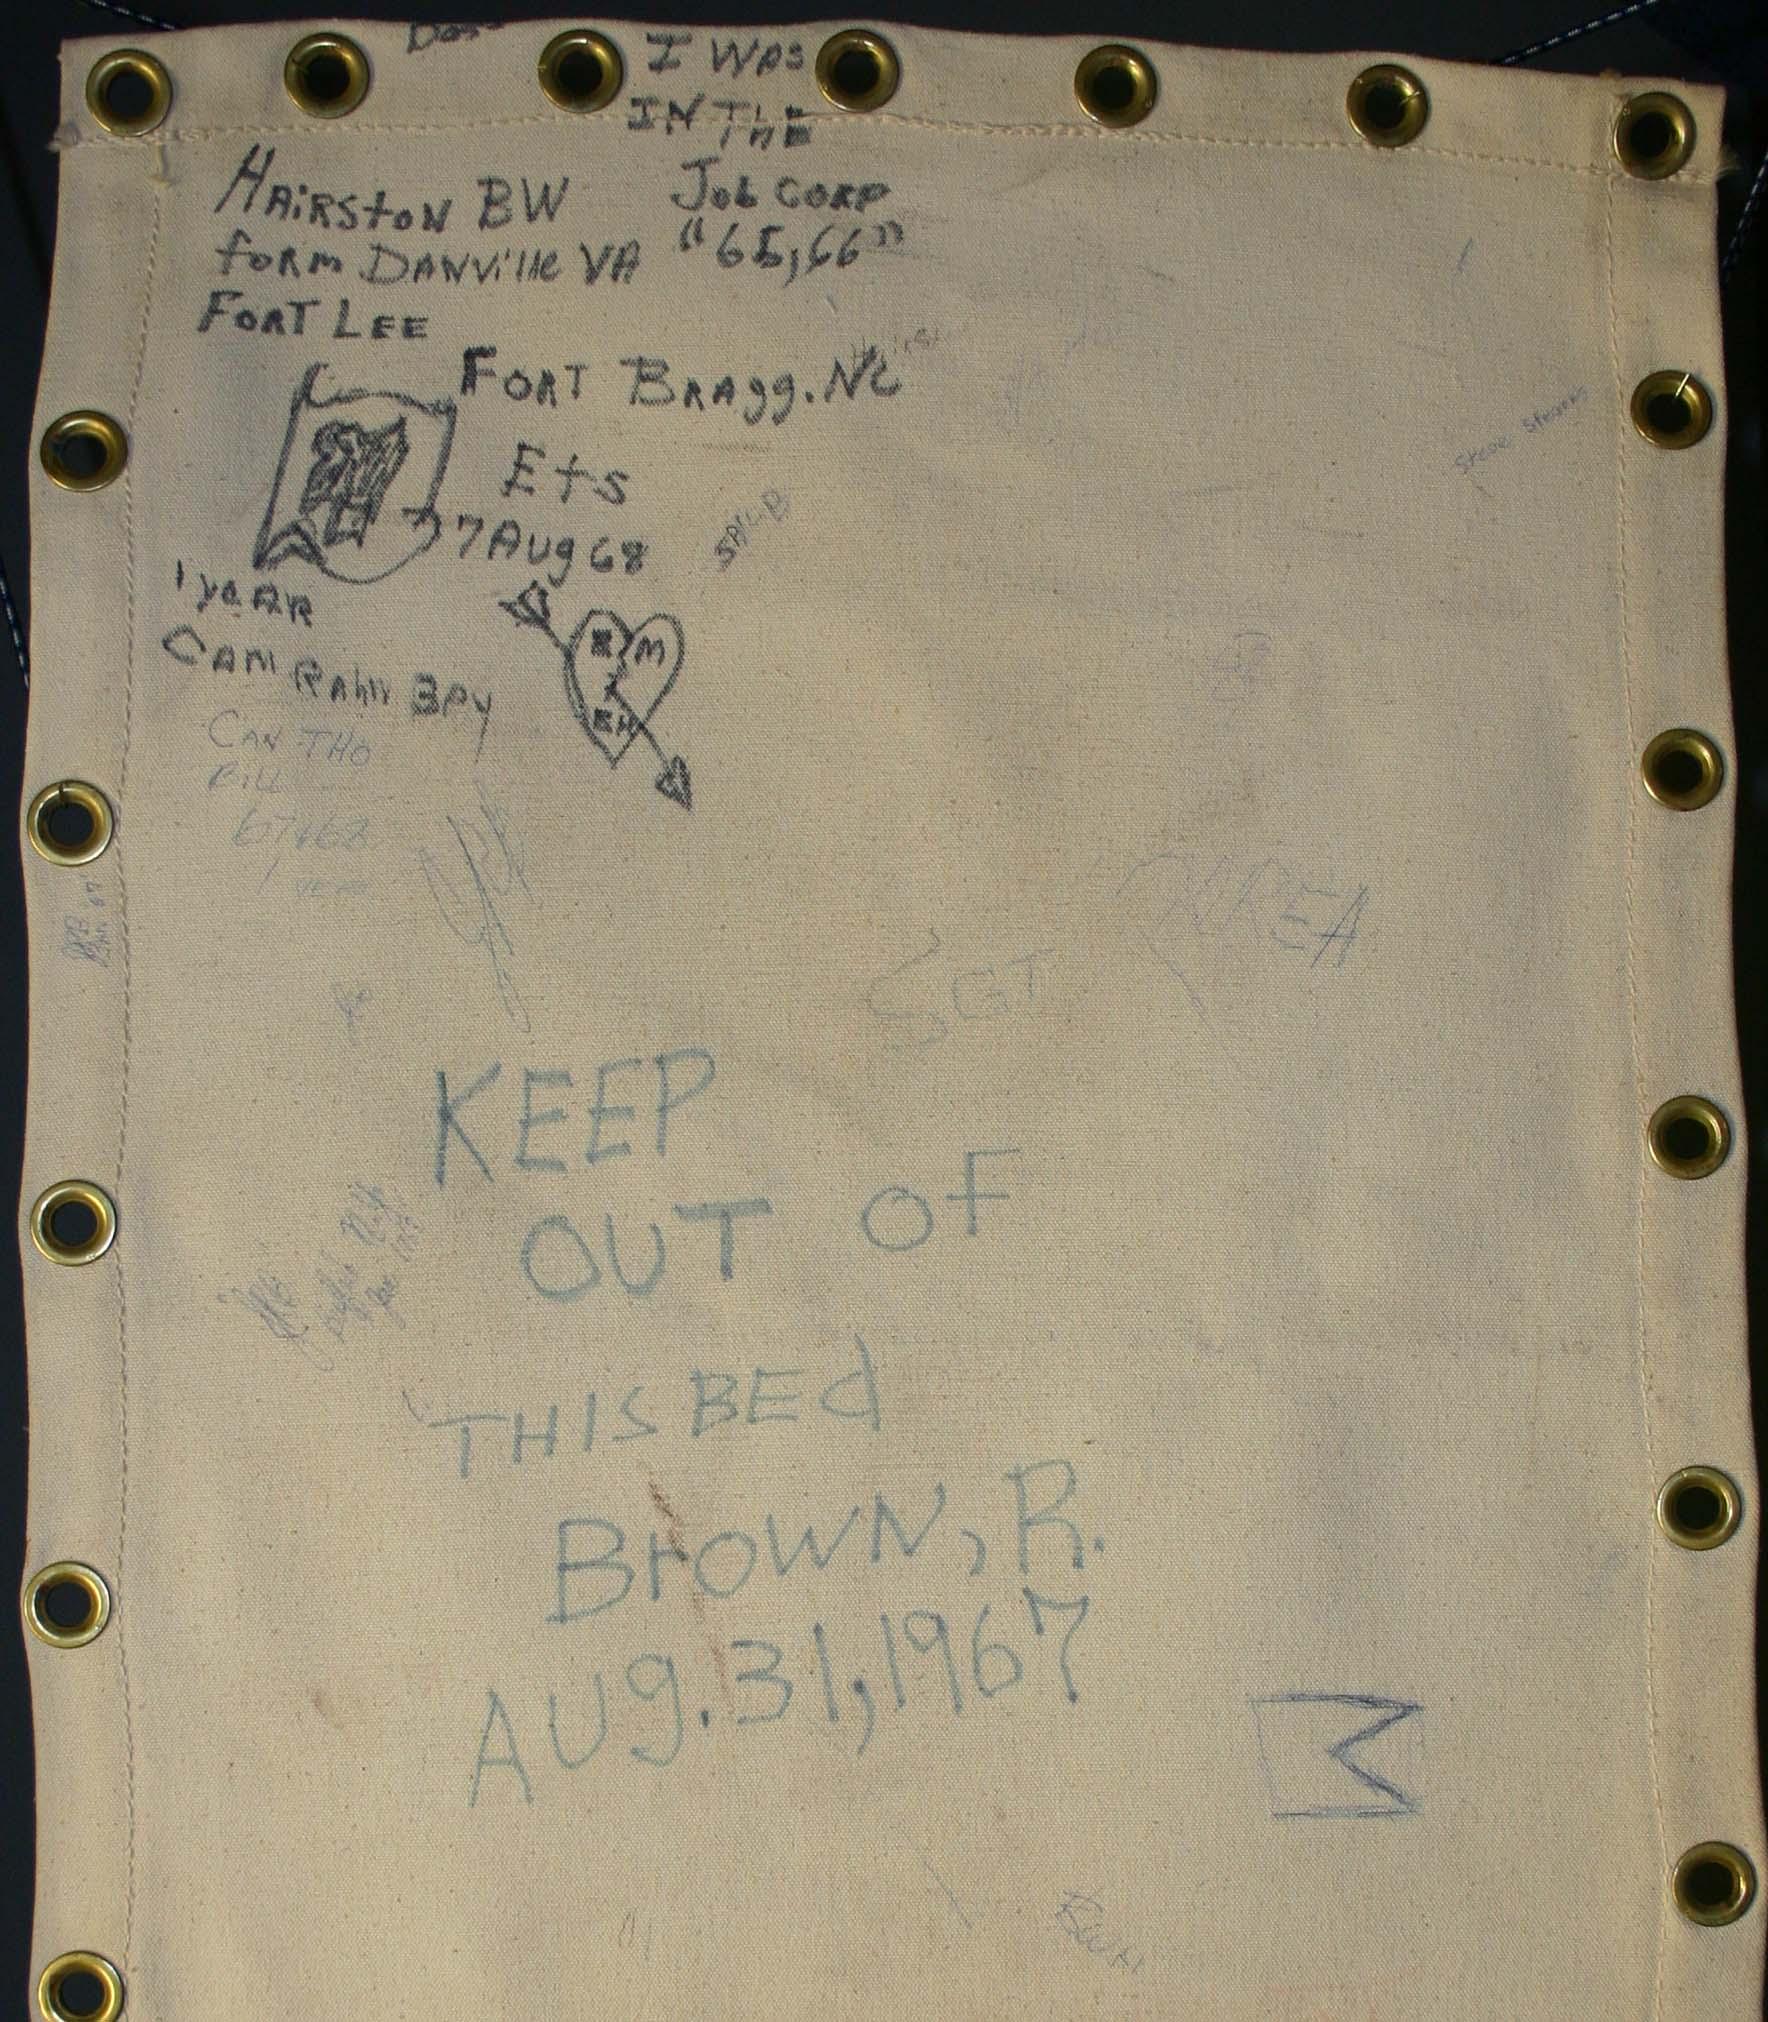 I WAS
IN THE
Job CORP
"65,66"
HAiRStoN BW
form DANville VA
FORT LEE
FORT BRAgg.NC
Ets
7 Aug 68
1 yeAR
CAM RAhN BAy
M
BH
CAN THO
67 & 68
1 year
SAIL-B
Steve Stevens
SGT
KEEP
OUT OF
THIS BEd
BrOWN, R.
AUg. 31, 1967